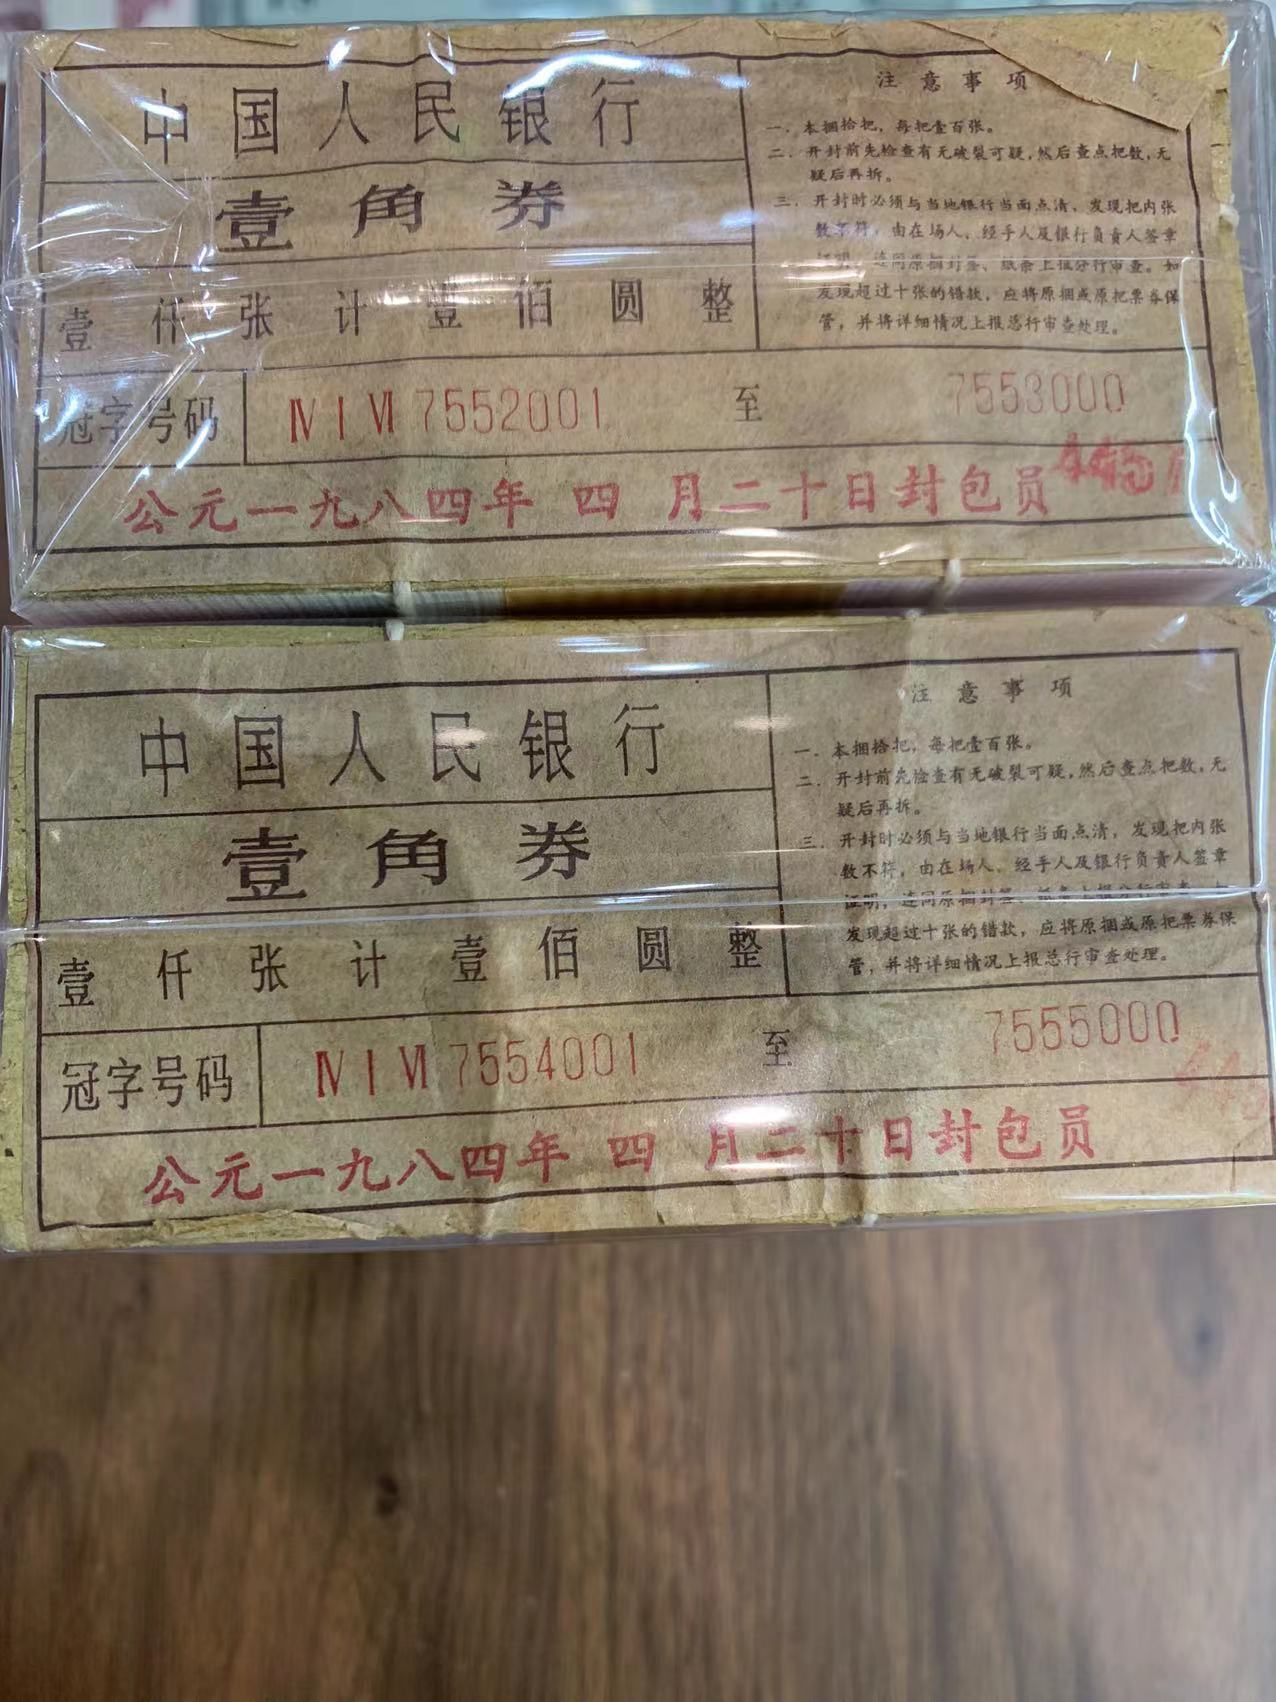 中国人民银行
壹角券
壹仟张计壹佰圆整
注意事项
一．本捆拾把，每把壹百张。
二．开封前先检查有无破裂可疑，然后查点把数，无
疑后再拆。
三．开封时必须与当地银行当面点清，发现把内张
数不符，由在场人、经手人及银行负责人签章
证明，连同原捆封签、纸条上报分行审查。如
发现超过十张的错款，应将原捆或原把票券保
管，并将详细情况上报总行审查处理。
冠字号码 Ⅳ Ⅰ Ⅵ 7552001 至 7553000
公元一九八四年 四 月二十日封包员 445
中国人民银行
壹角券
壹仟张计壹佰圆整
注意事项
一．本捆拾把，每把壹百张。
二．开封前先检查有无破裂可疑，然后查点把数，无
疑后再拆。
三．开封时必须与当地银行当面点清，发现把内张
数不符，由在场人、经手人及银行负责人签章
证明，连同原捆封签、纸条上报分行审查。
发现超过十张的错款，应将原捆或原把票券保
管，并将详细情况上报总行审查处理。
冠字号码 Ⅳ Ⅰ Ⅵ 7554001 至 7555000
445
公元一九八四年 四 月二十日封包员